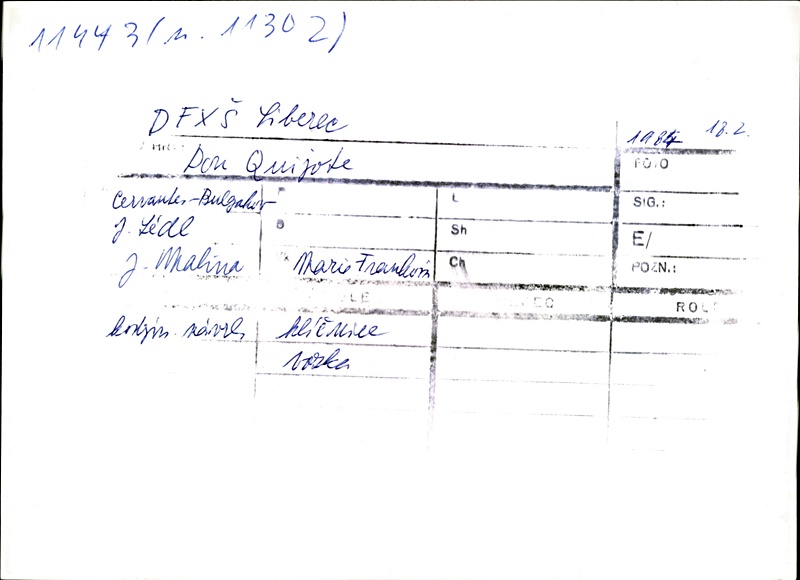 11443 (n. 11302)
DFXŠ Liberec
18.2.
Don Quijote
FOTO
Cervantes-Bulgakov
L
SIG.:
J. Lédl
B
Sh
E/
J. Malina
Marie Franková
Ch
POZN.:
kostým návrh
klíčnice
vozka